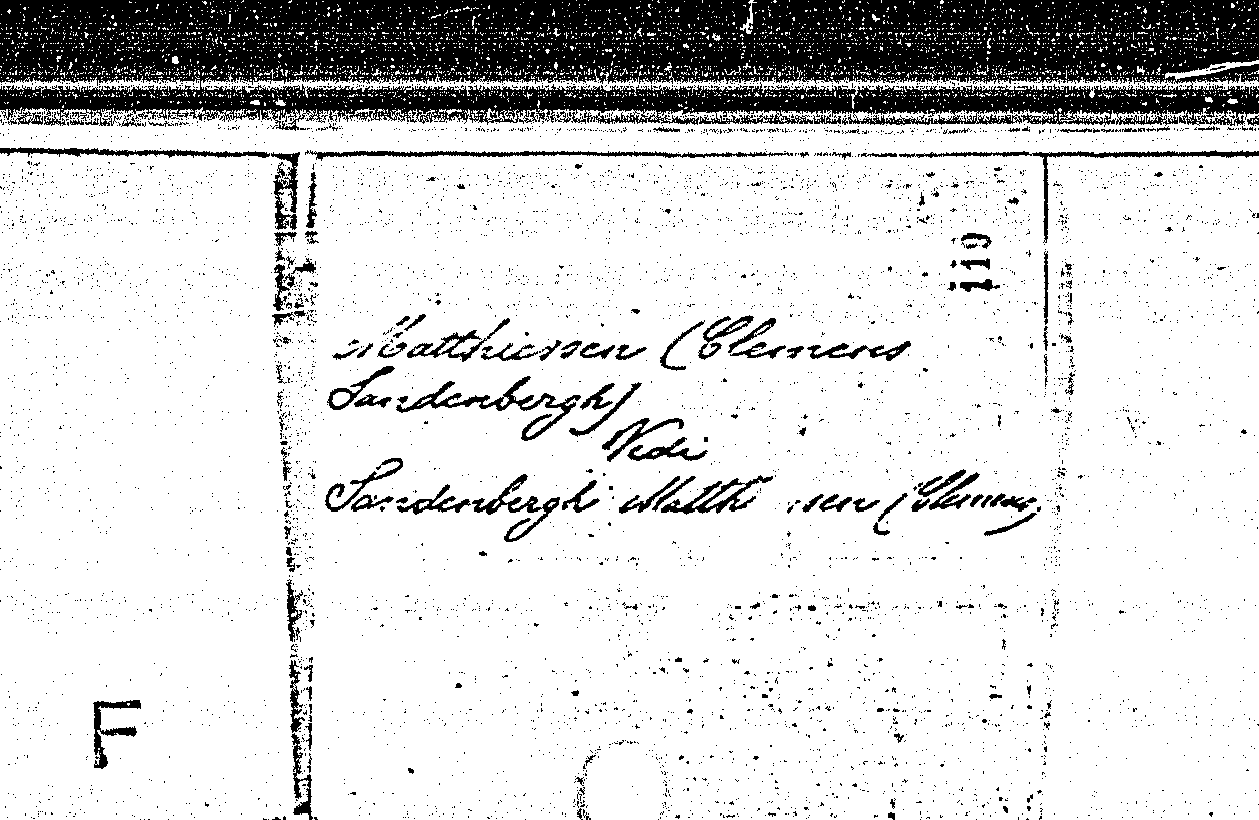 119
Matthiessen (Clemens
Sandenbergh)
Vedi
Sandenbergh Matth ssen (Clemens)
F